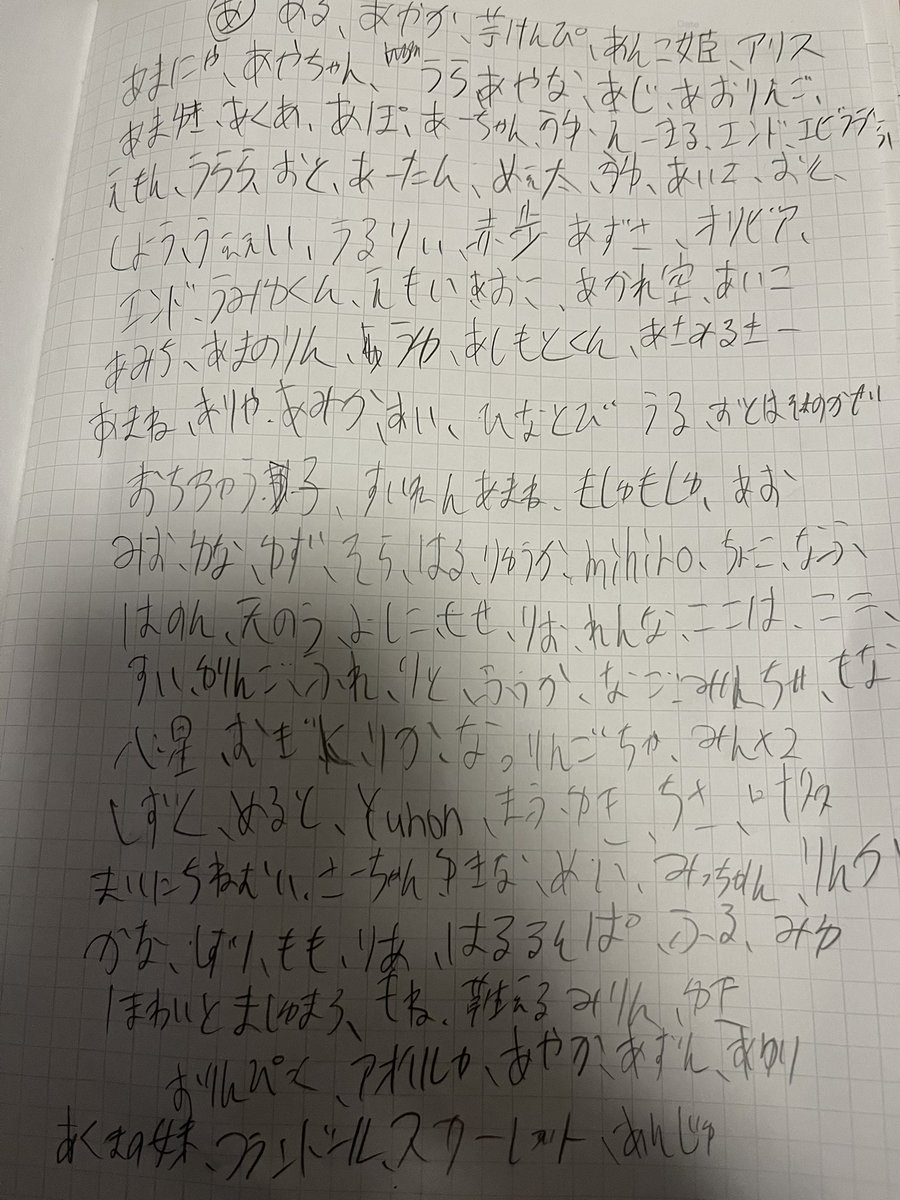 あ ある、あやか、芋けんぴ、あんこ姫、アリス
あまにゃ、あやちゃん、うら、あやな、あじ、あおりんご、
あま雪、あくあ、あぽ、あーちゃん、うゆ、えーまる、エンド、エビフライ
えもん、うらら、おと、あーたん、めぇ太、うゆ、あいエ、おと、
しょう、うぇぇい、うるりぃ、赤歩 あずさ、オリビア、
エンド、うみゆくん、えもい あおこ、あかね空、あいこ
あみち、あまのりん、うか、あしもとくん、
あまね、ありや、あみか、あい、ひなとび うる、おとはそのかぜい
おちちゅう 子、すいれんあまね、もしゅもしゅ、あお
みお、ゆな、ゆず、そら、はる、りゅうか、mihiro、ちょこ、なふ、
はのん、天のう、よしこ、せせ、りお、れんな、ここは、ここ、
すい、かりんご、ふれ、りと、ふうか、なご、みんちゅ、もな
心星、おもち、りか、なつ、りんごちゃ、みん×2
しずと、めると、Yuhon、まう、ゆE、ちさ、
まいにちねむい、さーちゃん ゆきな、めい、みっちゃん、りんか
かな、しずり、もも、りあ、はるるんぱ、ふーる、みゆ
ほわいとましゅまろ、もね、草生える みりん、ゆE
おりんぴく、アオハルカ、あやか、あずん、あかり
あくまの妹、フランドール、スカーレット、あんじゅ